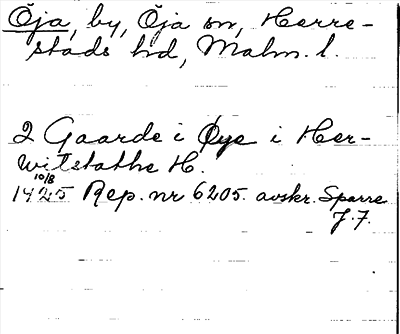 Öja, by, Öja sn, Herre-
stads hd, Malm. l.
2 Gaarde i Øye i Her-
witstathe H.
10/8
1425 Rep. nr 6205. avskr. Sparre
J. 7.